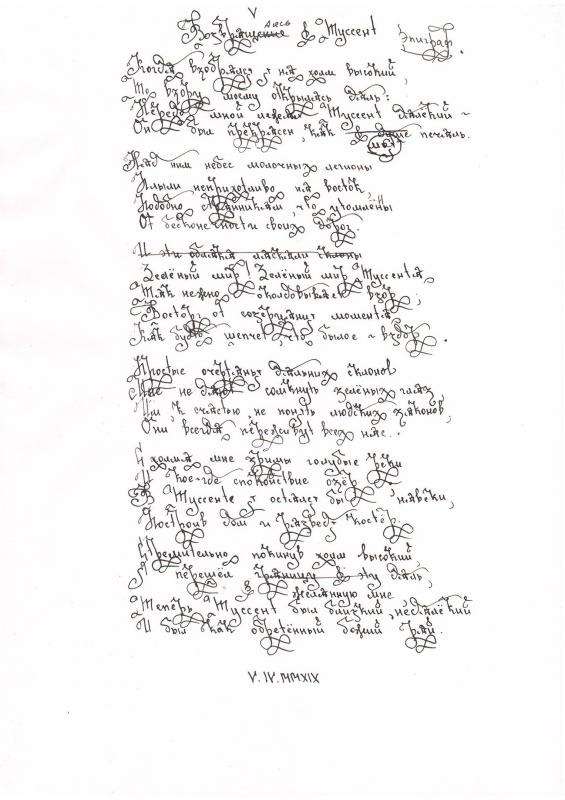 Аясъ
Возвращение в Туссент Эпиграф.
Когда взобрался я на холм высокий,
То взору моему открылась даль:
Передо мной лежал Туссент далёкий ~
Он был прекрасен, как в душе печаль.
моя
Над ним небес молочных легионы
Плыли неприхотливо на восток,
Подобно странникам, что утомлены
От бесконечности своих дорог.
И эти облака ласкали склоны
Зелёный мир! Зелёный мир Туссента,
Так нежно околдовывает взор,
Восторг от созерцания момента
Как будто шепчет, что былое ~ вздор.
Простые очертанья дальних склонов
Мне не дают сомкнуть зелёных глаз
Им, к счастью, не понять людских законов,
Они всегда переживут всех нас...
С холма мне зримы голубые реки
И кое-где спокойствие озёр
В Туссенте я остался бы навеки,
Построив дом и разведя костёр.
Стремительно покинув холм высокий,
Я перешёл границу в эту даль
в желанную мне
Теперь Туссент был близкий, недалёкий
И был как обретённый божий рай.
V.IV.MMXIX